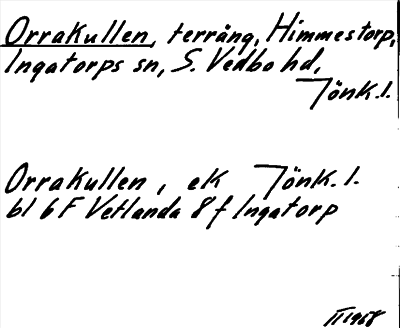 Orrakullen, terräng, Himmestorp,
Ingatorps sn, S. Vedbo hd,
Jönk.l.
Orrakullen, ek Jönk. l.
bl 6F Vetlanda 8f Ingatorp
II 1968